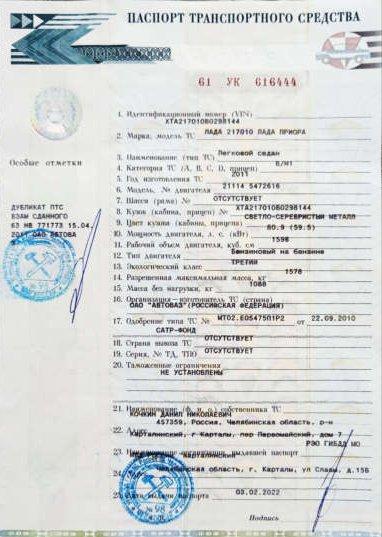 ПАСПОРТ ТРАНСПОРТНОГО СРЕДСТВА
61 УК 616444
Особые отметки
ДУБЛИКАТ ПТС
ВЗАМ СДАННОГО
63 НВ 771773 15.04.
2011 ОАО АВТОВА
1. Идентификационный номер (VIN)
XTA217010B0298144
2. Марка, модель ТС ЛАДА 217010 ЛАДА ПРИОРА
3. Наименование (тип ТС) Легковой седан
4. Категория ТС (A, B, C, D, прицеп) B/M1
5. Год изготовления ТС 2011
6. Модель, № двигателя 21114 5472616
7. Шасси (рама) № ОТСУТСТВУЕТ
8. Кузов (кабина, прицеп) № XTA217010B0298144
9. Цвет кузова (кабины, прицепа) СВЕТЛО-СЕРЕБРИСТЫЙ МЕТАЛЛ
10. Мощность двигателя, л. с. (кВт) 80.9 (59.5)
11. Рабочий объем двигателя, куб. см 1596
12. Тип двигателя Бензиновый на бензине
13. Экологический класс ТРЕТИЙ
14. Разрешенная максимальная масса, кг 1578
15. Масса без нагрузки, кг 1088
16. Организация—изготовитель ТС (страна)
ОАО "АВТОВАЗ"(РОССИЙСКАЯ ФЕДЕРАЦИЯ)
17. Одобрение типа ТС № МТ02.Е05475П1Р2 от 22.09.2010
САТР-ФОНД
18. Страна вывоза ТС ОТСУТСТВУЕТ
19. Серия, № ТД, ТПО ОТСУТСТВУЕТ
20. Таможенные ограничения
НЕ УСТАНОВЛЕНЫ
21. Наименование (ф. и. о.) собственника ТС
КОЧКИН ДАНИЛ НИКОЛАЕВИЧ
457359, Россия, Челябинская область, р-н
22. Адрес Карталинский, г Карталы, пер Первомайский, дом 7
23. Наименование организации, выдавшей паспорт РЭО ГИБДД МО
КАРТАЛИНСКИЙ
Челябинская область, г. Карталы, ул Славы, д.15Б
25. Дата выдачи паспорта 03.02.2022
Подпись